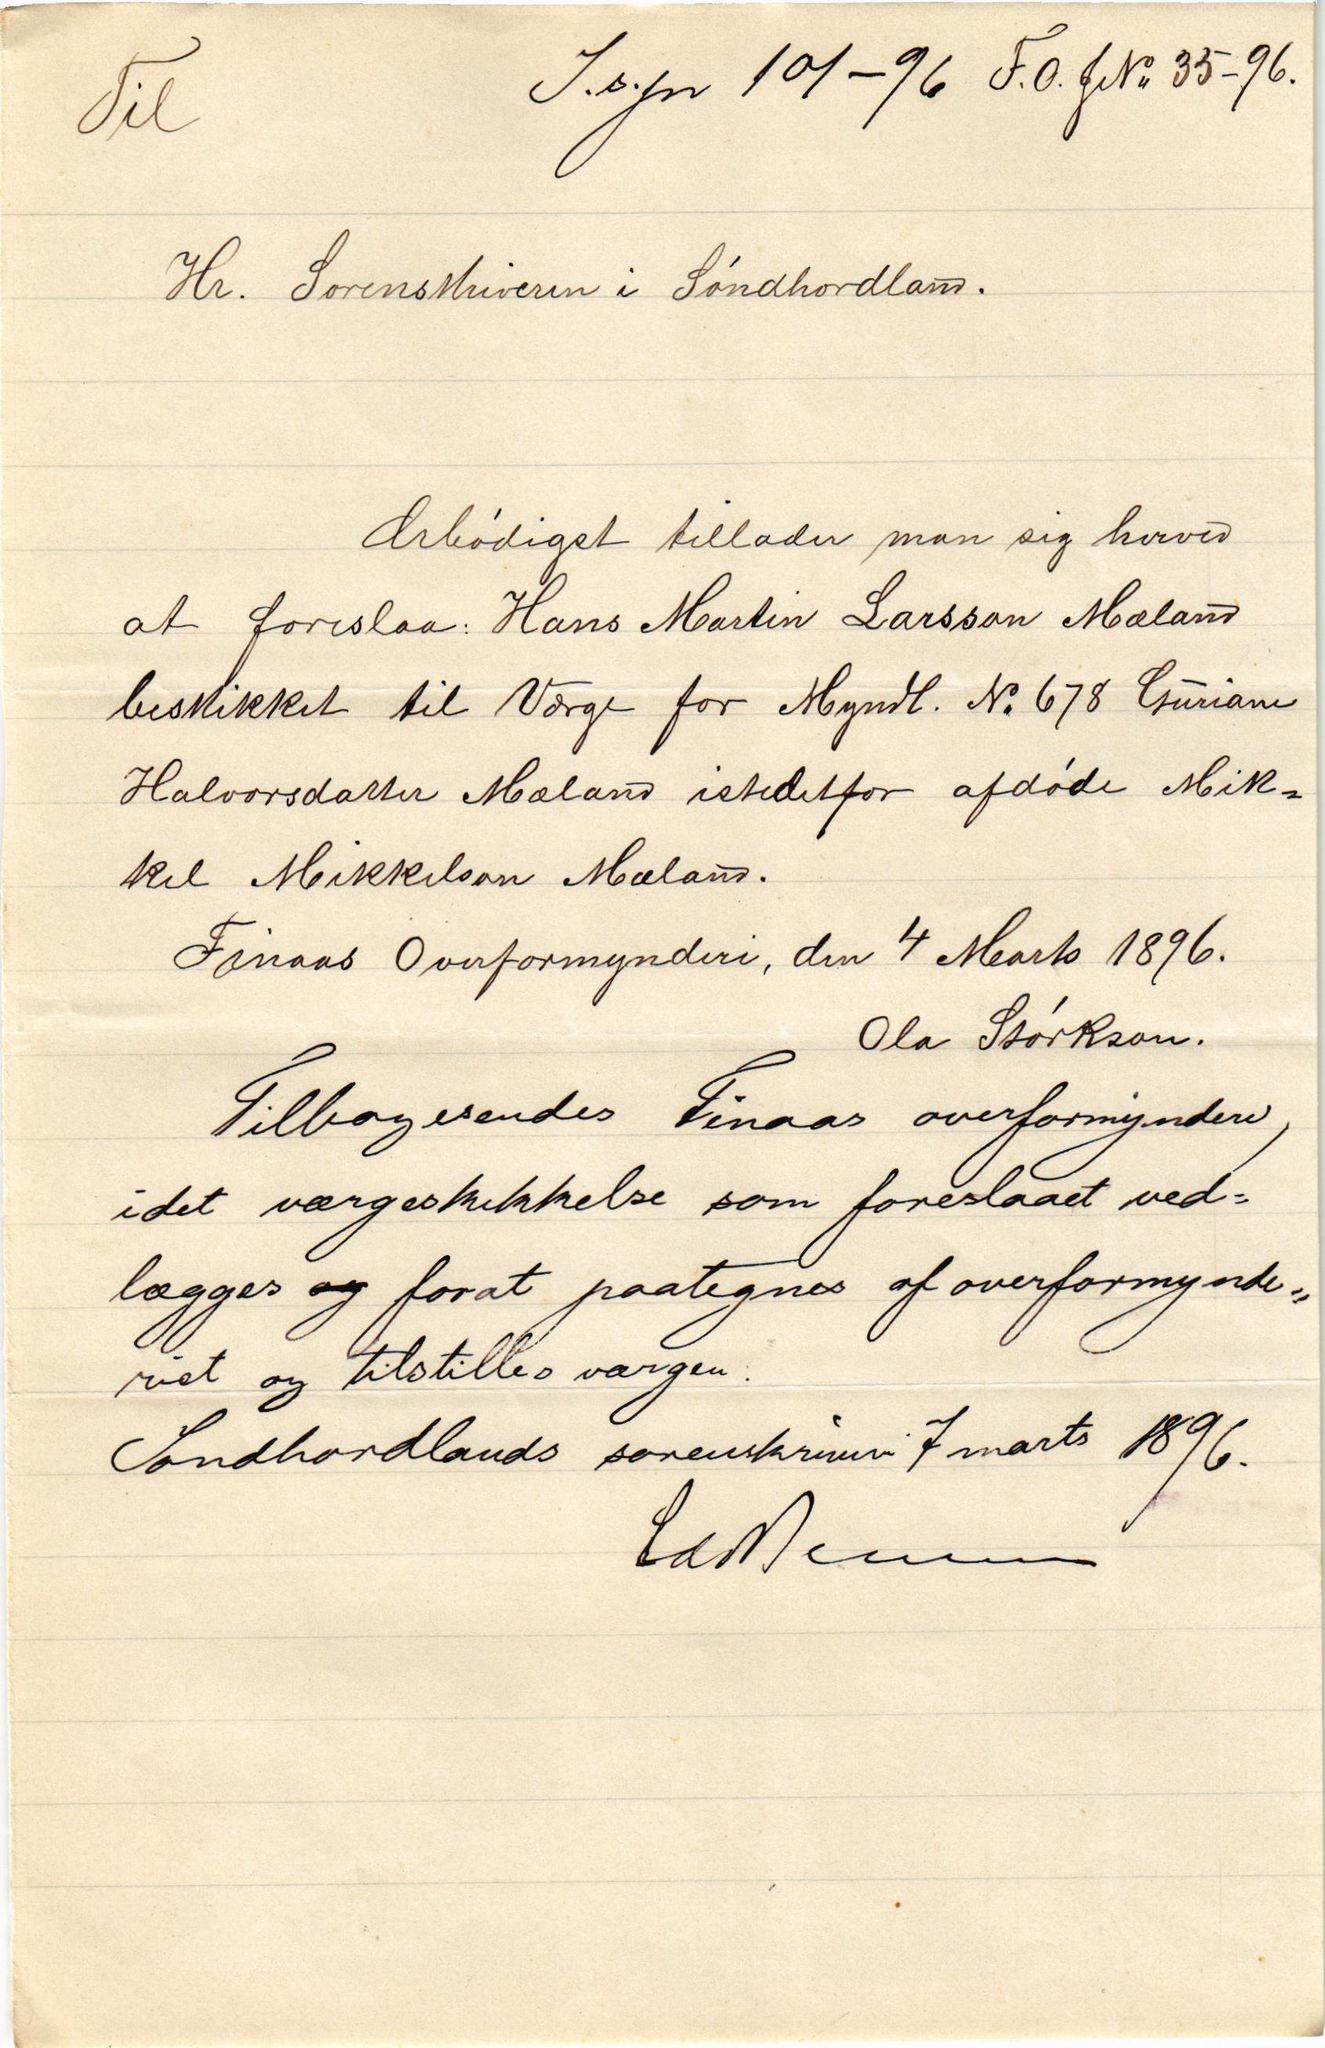 Til
S.s.jn 101-96 F.O. jNo 35-96.
Hr. Sorenskriveren i Söndhordland.
Ærbödigst tillader man sig herved
at foreslaa: Hans Martin Larsson Mæland
beskikket til Værge for Myndl. No 678 Guriane
Halvorsdatter Mæland istedetfor afdöde Mik=
kel Mikkelson Mæland.
Finaas Overformynderi, den 4 Marts 1896.
Ola Störkson.
Tilbagesendes Finaas overformynderi,
idet værgeskikkelse som foreslaaet ved=
lægges og forat paategnes af overformynde=
riet og tilstilles værgen.
Søndhordlands sorenskriveri 7 marts 1896.